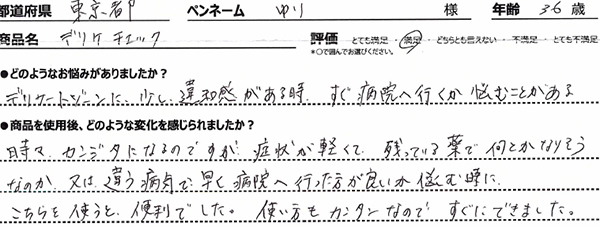 都道府県 東京都 ペンネーム ゆり 様 年齢 36 歳
商品名 デリケチェック 評価 とても満足 ・ 満足 ・ どちらとも言えない ・ 不満足 ・ とても不満足
※○で囲んでお選びください。
●どのようなお悩みがありましたか？
デリケートゾーンに、少し違和感がある時、すぐ病院へ行くか悩むことがある
●商品を使用後、どのような変化を感じられましたか？
時々、カンジタになるのですが、症状が軽くて、残っている薬で何とかなりそう
なのか、又は、違う病気で早く病院へ行った方が良いか悩む時に、
こちらを使うと、便利でした。使い方もカンタンなので、すぐにできました。